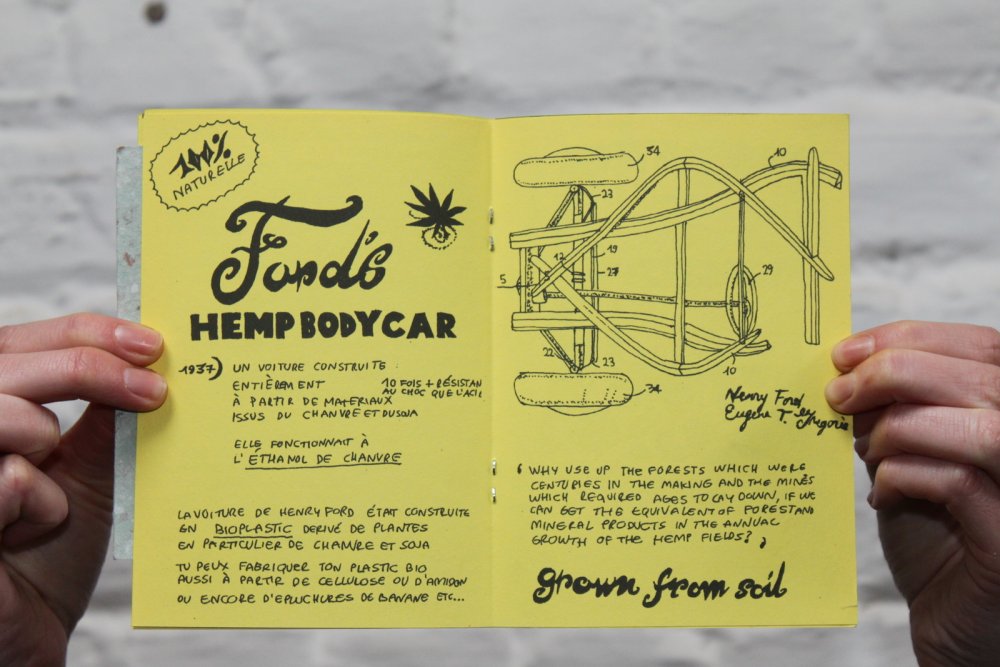 100%
NATURELLE
Ford's
HEMP BODY CAR
1937) UN VOITURE CONSTRUITE :
ENTIÈREMENT
À PARTIR DE MATERIAUX
ISSUS DU CHANVRE ET DU SOJA
10 FOIS + RÉSISTAN
AU CHOC QUE L'ACIE
ELLE FONCTIONNAIT À
L'ÉTHANOL DE CHANVRE
LA VOITURE DE HENRY FORD ÉTAT CONSTRUITE
EN BIOPLASTIC DERIVÉ DE PLANTES
EN PARTICULIER DE CHANVRE ET SOJA
TU PEUX FABRIQUER TON PLASTIC BIO
AUSSI À PARTIR DE CELLULOSE OU D'AMIDON
OU ENCORE D'EPLUCHURES DE BANANE ETC...
34
10
23
19
12
27
5
29
22
23
10
34
Henry Ford
Eugene T. Gregorie
' WHY USE UP THE FORESTS WHICH WERE
CENTURIES IN THE MAKING AND THE MINES
WHICH REQUIRED AGES TO LAY DOWN, IF WE
CAN GET THE EQUIVALENT OF FOREST AND
MINERAL PRODUCTS IN THE ANNUAL
GROWTH OF THE HEMP FIELDS? '
grown from soil